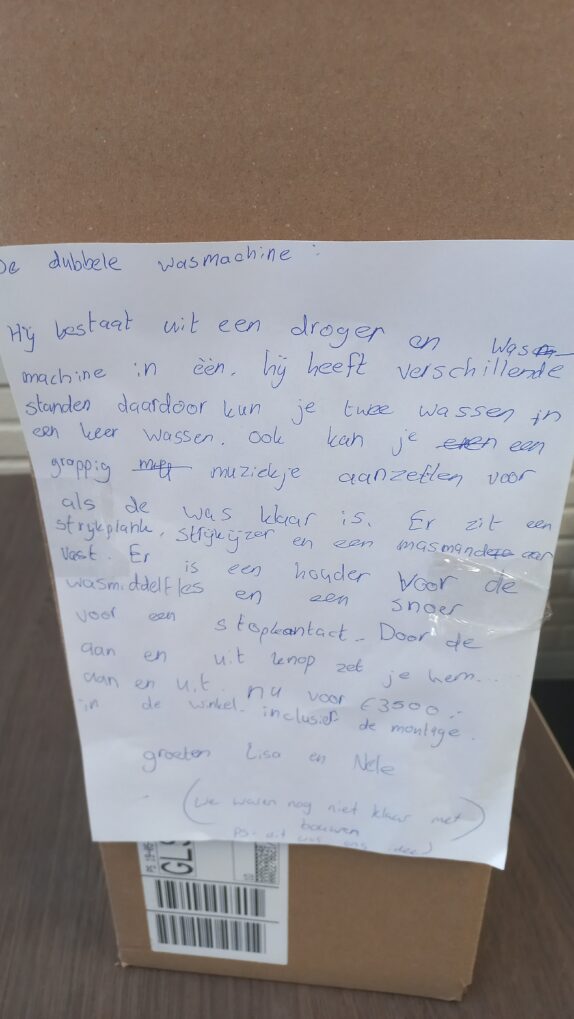 De dubbele wasmachine :
Hij bestaat uit een droger en was
machine in èèn. hij heeft verschillende
standen daardoor kun je twee wassen in
een keer wassen. ook kan je een
grappig muziekje aanzetten voor
als de was klaar is. Er zit een
strijkplank, strijkijzer en een wasmand aan
vast. Er is een houder voor de
wasmiddelfles en een snoer
voor een stopkontact. Door de
aan en uit knop zet je hem...
aan en uit. nu voor €3500,-
in de winkel. inclusief de montage.
groeten Lisa en Nele
(we waren nog niet klaar met
bouwen
PS. dit was ons idee)
GLS